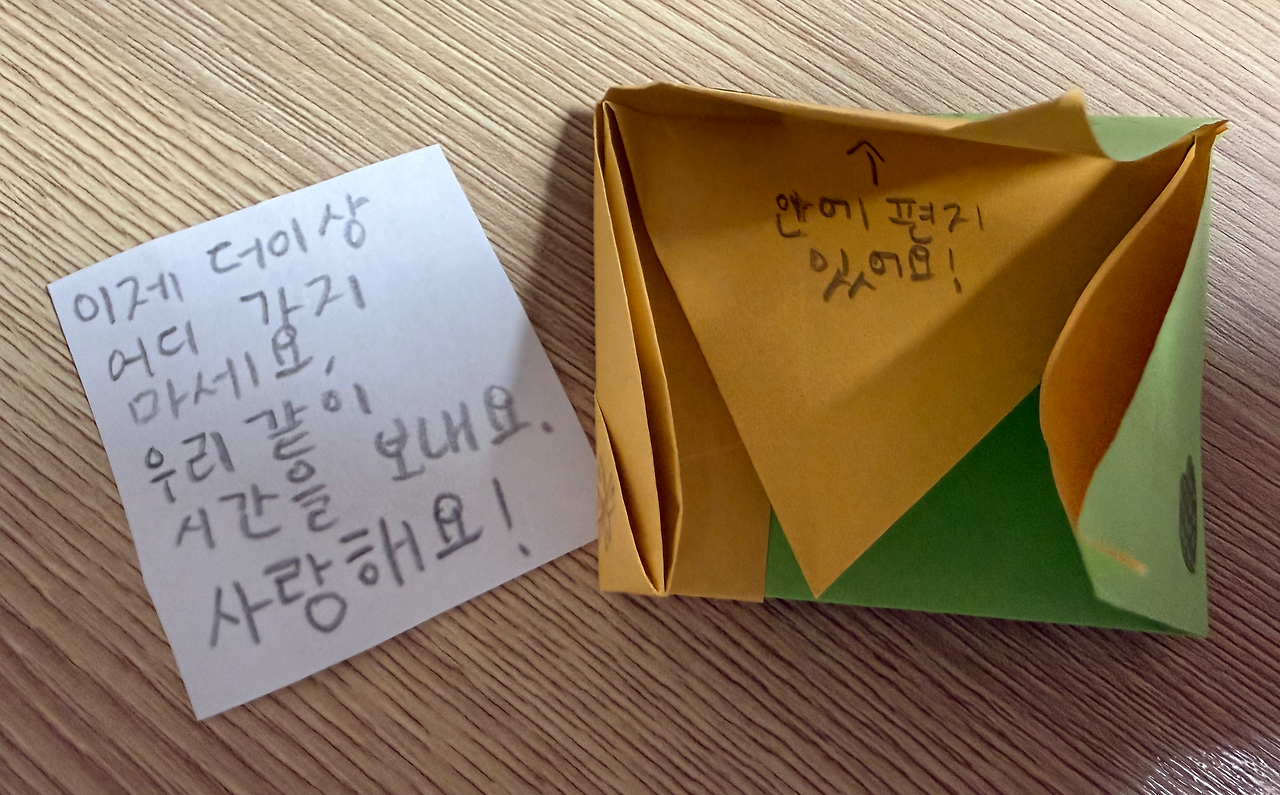 이제 더이상
어디 가지
마세요,
우리 같이
시간을 보내요.
사랑해요!
↑
안에 편지
있어요!